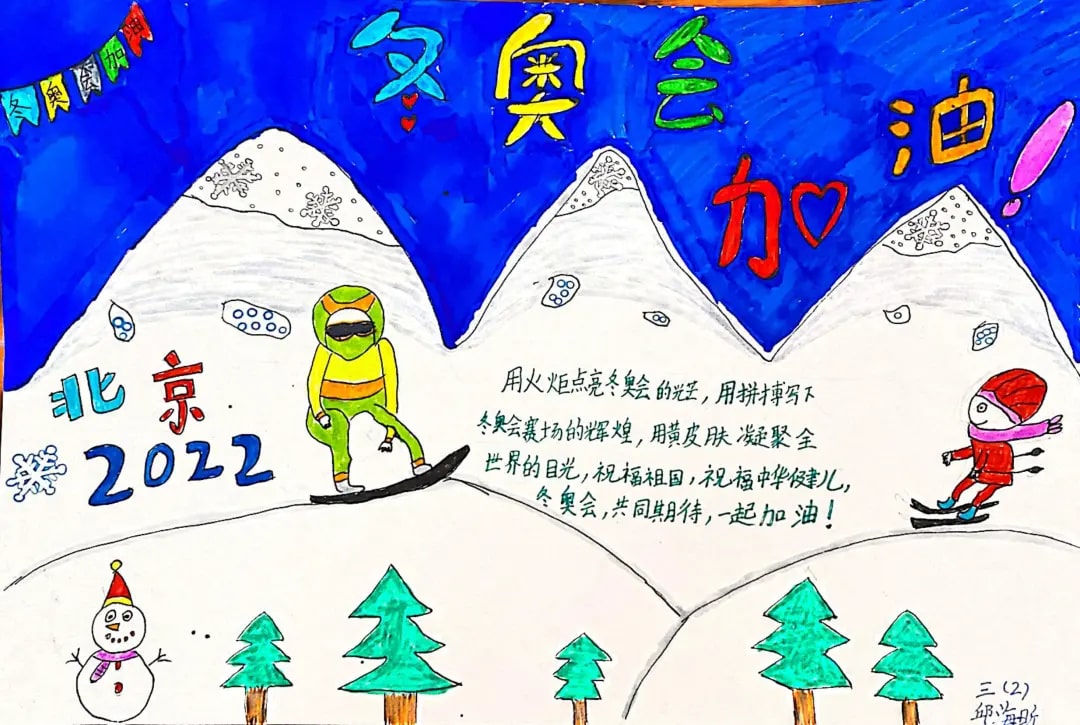 冬奥会加油
冬奥会加油!
北京
2022
用火炬点亮冬奥会的光芒,用拼搏写下
冬奥会赛场的辉煌,用黄皮肤凝聚全
世界的目光,祝福祖国,祝福中华健儿,
冬奥会,共同期待,一起加油!
三(2)
邱海